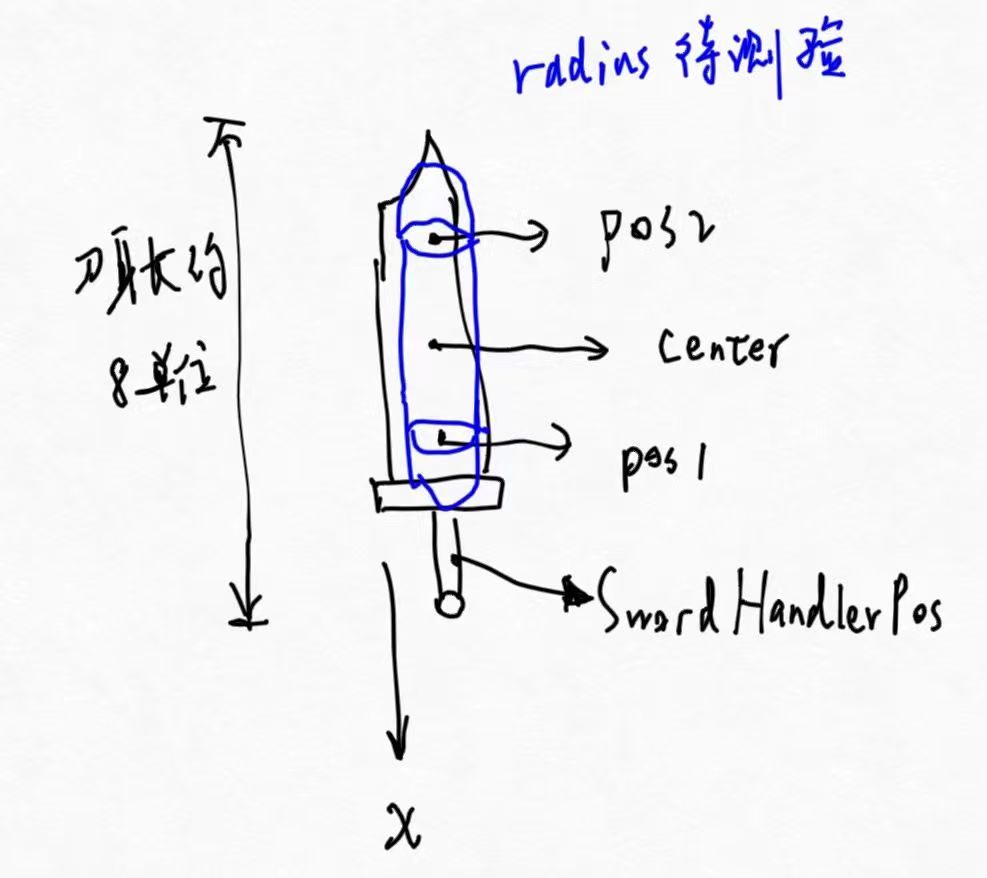 radius 待测验
刀身长约
8单位
pos2
Center
pos1
SwordHandlerPos
x